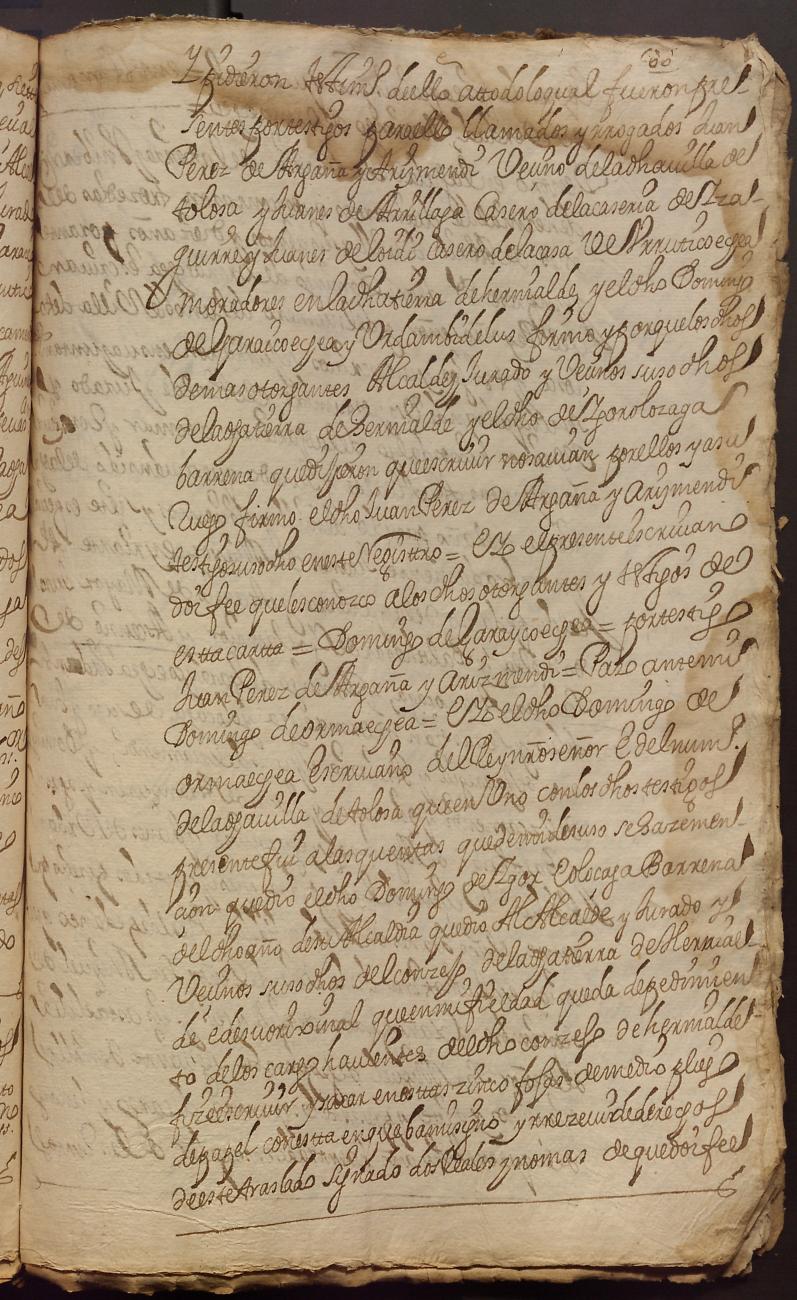 60
Y pidieron testim.º dello a todo lo qual fueron pre-
sentes por testigos para ello llamados y rrogados Juan
Perez de Argaña y Arizmendi Vecino de la dha villa de
tolosa y Juanes de Arrillaga Casero de la caseria de Yza-
guirre y Juanes de loidi casero de la casa de Urruticoechea
moradores en la dha tierra de hernialde y el dho Domingo
de Garaicoechea y Urdambidelus firmo y porque los dhos
demas otorgantes Alcalde Jurado y Vecinos suso dhos
de la dha tierra de hernialde y el dho de Ygorolozaga
barrena que dijeron que escriuir no sauian por ellos y a su
Ruego firmo el dho Juan Perez de Argaña y Arizmendi
testigo suso dho en este Registro = E yo el presente escriuano
doi fee que les conozco a los dhos otorgantes y testigos de
esta carta = Domingo de Garaycoechea = por testigo
Juan Perez de Argaña y Arizmendi = Paso ante mi
Domingo de ormaechea = E yo el dho Domingo de
ormaechea Escriuano del Rey nrō señor E del num.º
de la dha villa de tolosa que en Uno con los dhos testigos
presente fui a las quentas que de mi de suso se haze men-
cion que dio el dho Domingo de Ygorolocaga Barrena
del dho año de su Alcaldia que dio Al Alcalde y Jurado y
Vecinos suso dhos del conzejo de la dha tierra de Hernial-
de e de su orixinal que en mi fieldad queda de pedimien-
to de los cargo hauientes del dho conzejo de hernialde
fize escriuir y sacar en estas zinco fojas de medio pliego
de papel con esta en que ba mi signo y rrezeui de derechos
de este traslado signado dos Reales y no mas de que doi fee